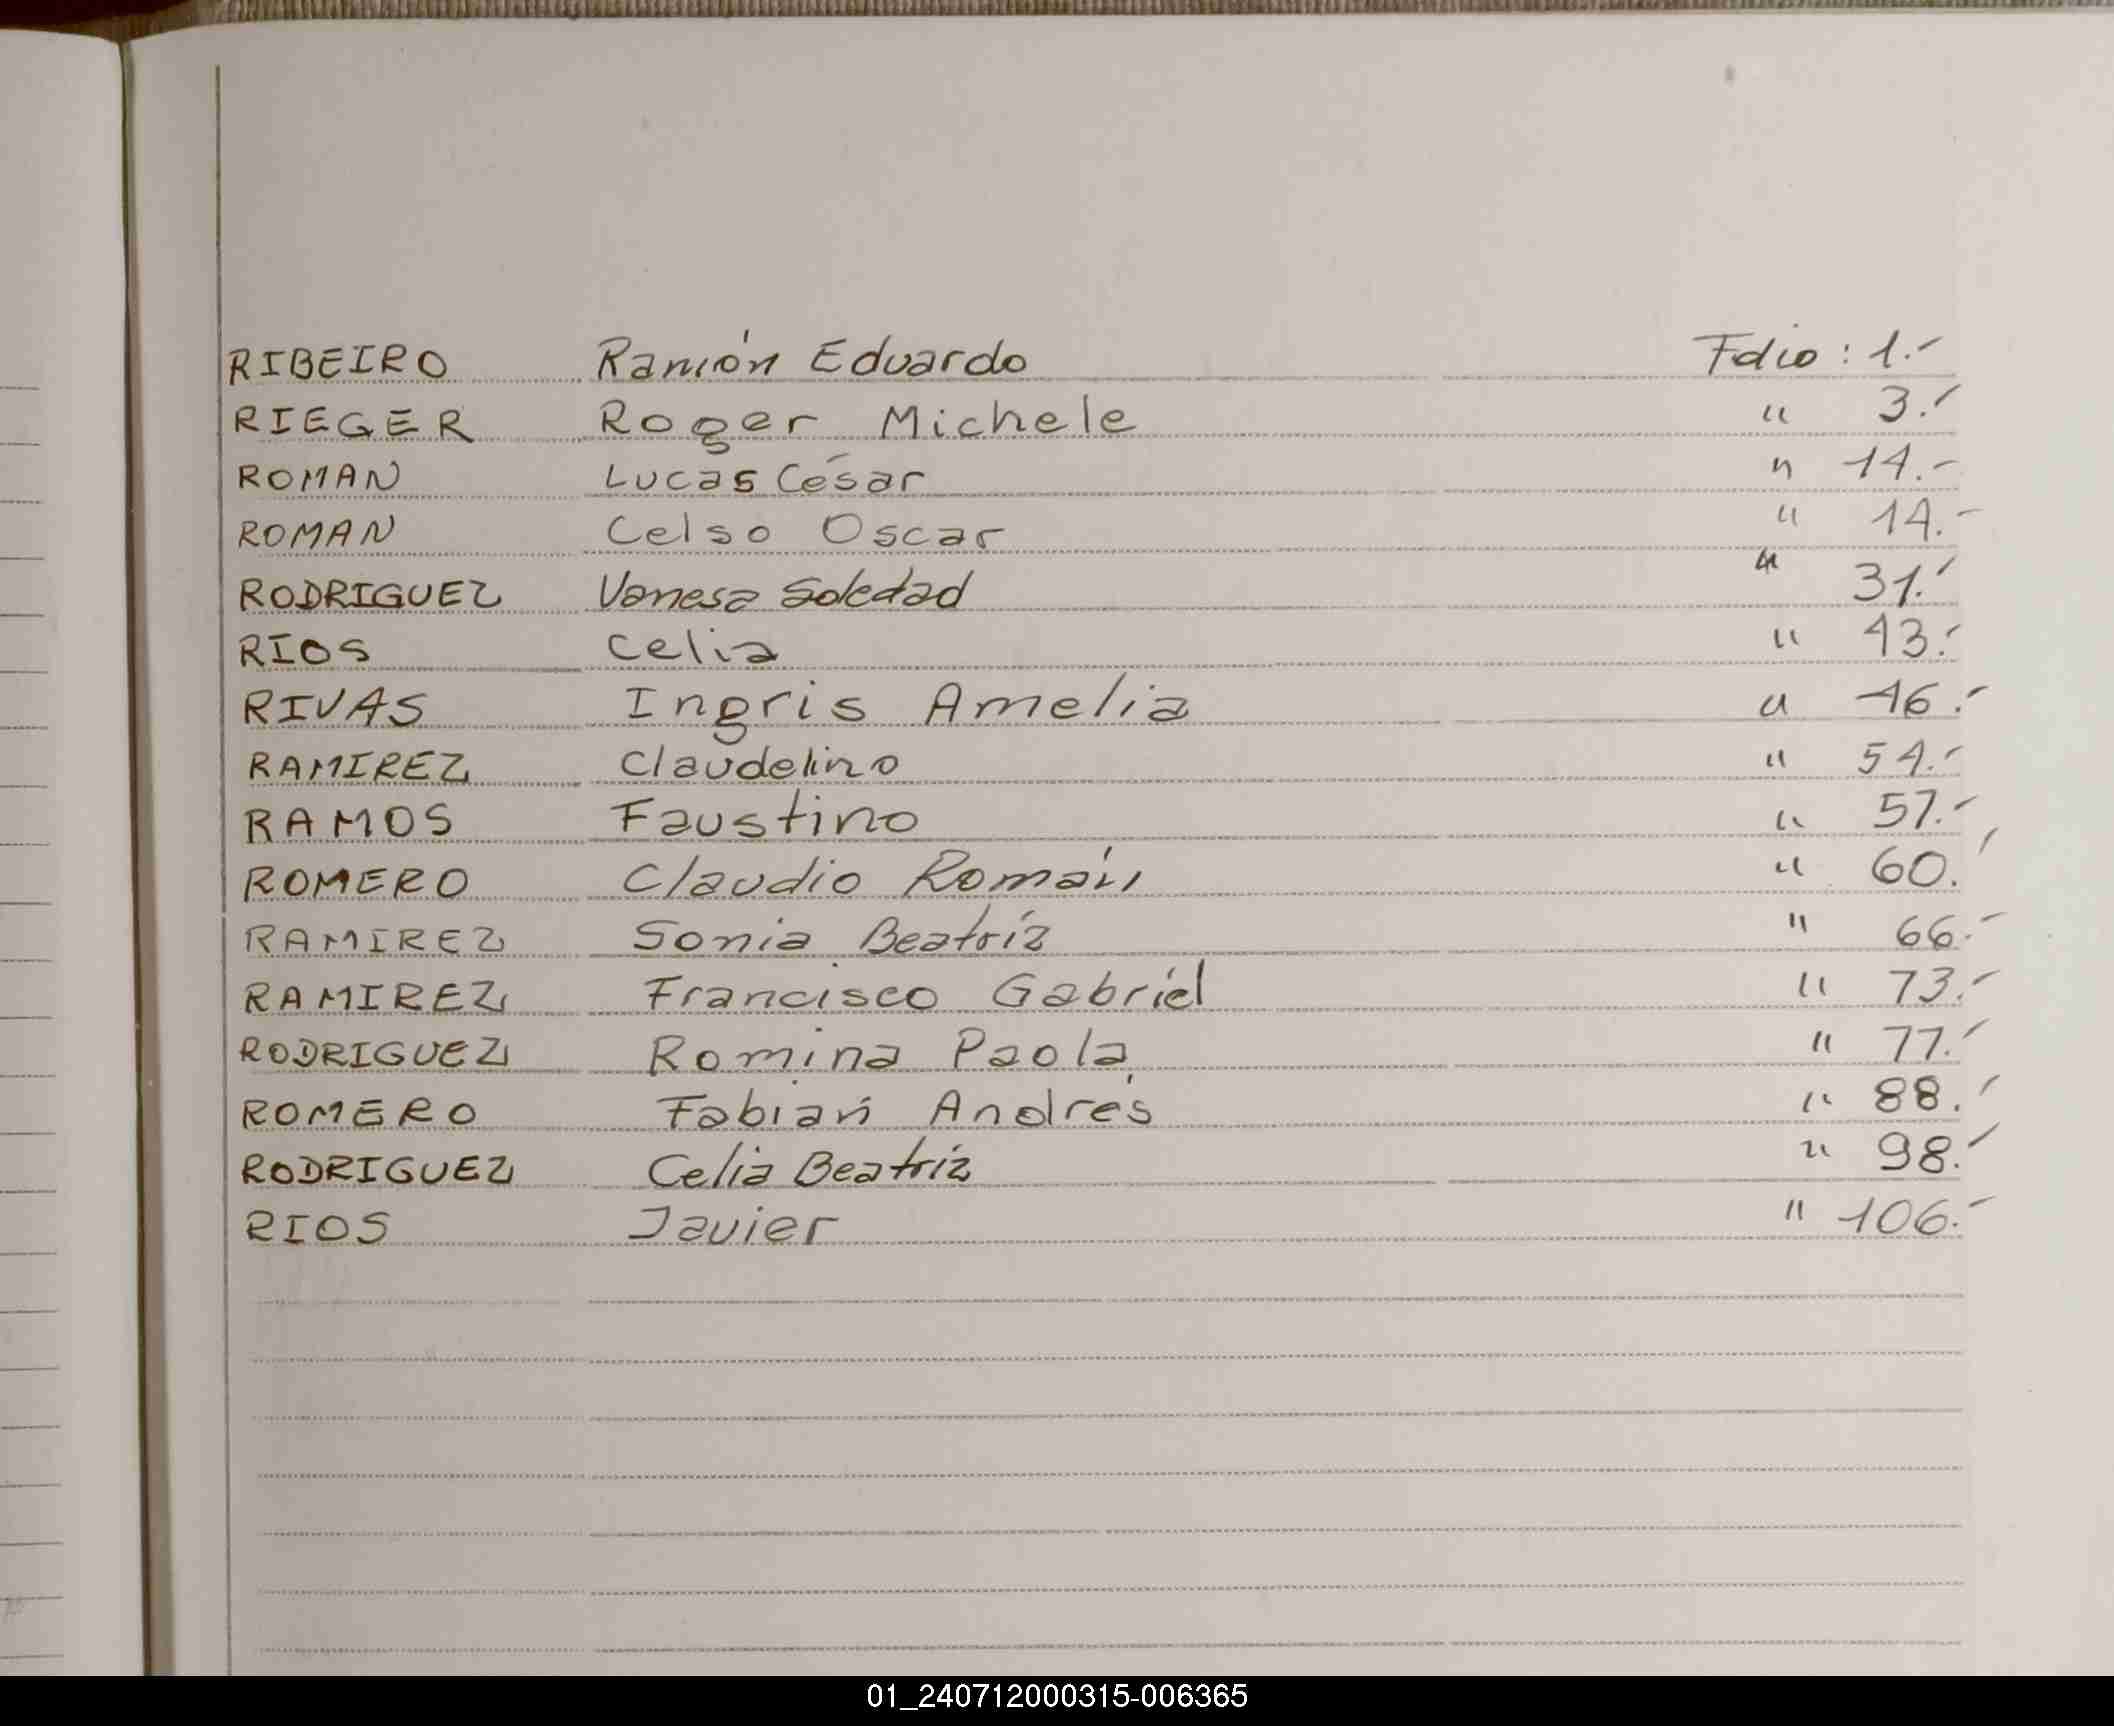 RIBEIRO Ramón Eduardo Folio : 1.-
RIEGER Roger Michele " 3.-
ROMAN Lucas César " 14.-
ROMAN Celso Oscar " 14.-
RODRIGUEZ Vanesa Soledad " 31.-
RIOS Celia " 43.-
RIVAS Ingris Amelia " 46.-
RAMIREZ Claudelino " 54.-
RAMOS Faustino " 57.-
ROMERO Claudio Román " 60.-
RAMIREZ Sonia Beatríz " 66.-
RAMIREZ Francisco Gabriel " 73.-
RODRIGUEZ Romina Paola " 77.-
ROMERO Fabián Andrés " 88.-
RODRIGUEZ Celia Beatríz " 98.-
RIOS Javier " 106.-
01_240712000315-006365